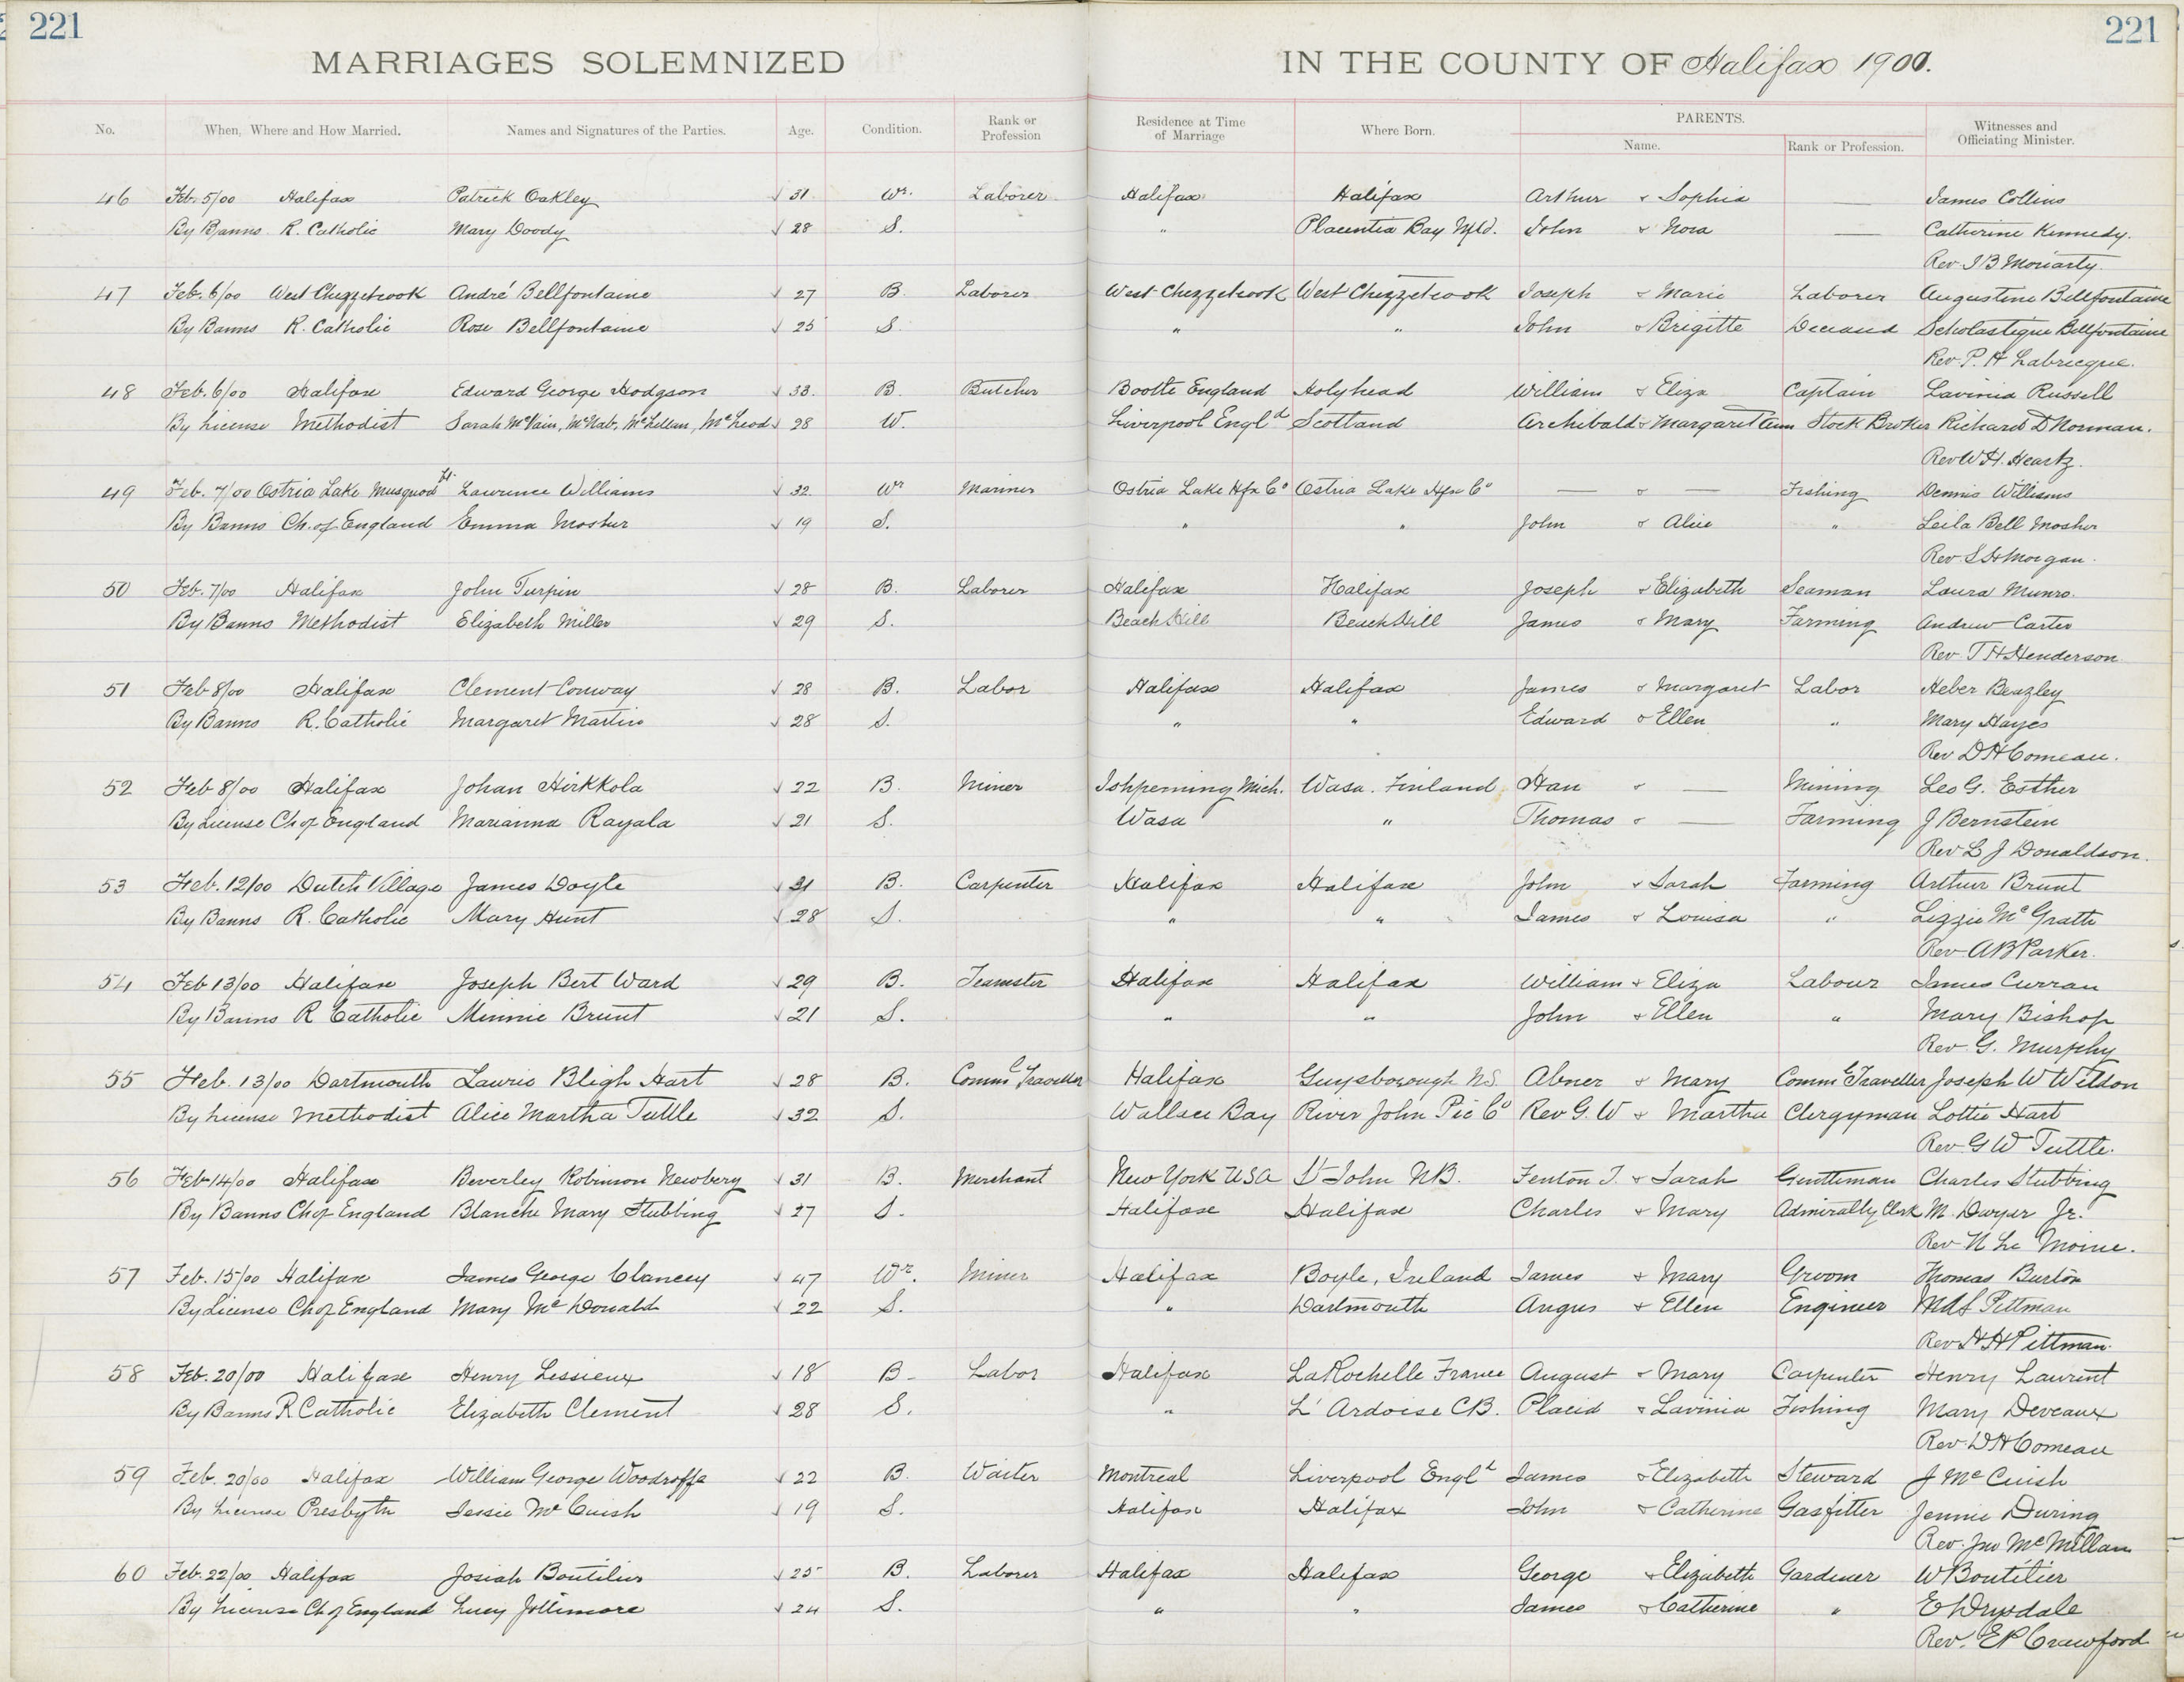 221
221
MARRIAGES SOLEMNIZED IN THE COUNTY OF Halifax 1900.
No. When, Where and How Married. Names and Signatures of the Parties. Age. Condition. Rank or Profession Residence at Time of Marriage Where Born. PARENTS. Name. Rank or Profession. Witnesses and Officiating Minister.
46 Feb. 5/00 Halifax Patrick Oakley √ 31 Wr. Laborer Halifax Halifax Arthur & Sophia — James Collins
By Banns R. Catholic Mary Doody √ 28 S. " Placentia Bay Nfld. John & Nora — Catherine Kennedy.
Rev J B Moriarty.
47 Feb. 6/00 West Chezzetcook André Bellfontaine √ 27 B. Laborer West Chezzetcook West Chezzetcook Joseph & Marie Laborer Augustine Bellfontaine
By Banns R. Catholic Rose Bellfontaine √ 25 S. " " John & Brigitte Deceased Scholastique Bellfontaine
Rev. P. A Labrecque.
48 Feb. 6/00 Halifax Edward George Hodgson √ 33. B. Butcher Bootle England Holyhead William & Eliza Captain Lavinia Russell
By License Methodist Sarah McVain, McNab, McLellan, McLeod √ 28 W. Liverpool Engld Scotland Archibald & Margaret Ann Stock Broker Richard D Norman.
Rev W. H. Heartz.
49 Feb. 7/00 Ostria Lake Musquodt Lawrence Williams √ 32 Wr Mariner Ostria Lake Hfx Co Ostria Lake Hfx Co — & — Fishing Dennis Williams
By Banns Ch. of England Emma Mosher √ 19 S. " " John & Alice " Leila Bell Mosher
Rev S H Morgan.
50 Feb. 7/00 Halifax John Turpin √ 28 B. Laborer Halifax Halifax Joseph & Elizabeth Seaman Laura Munro.
By Banns Methodist Elizabeth Miller √ 29 S. Beach Hill Beach Hill James & Mary Farming Andrew Carter
Rev. T H Henderson
51 Feb 8/00 Halifax Clement Conway √ 28 B. Labor Halifax Halifax James & Margaret Labor Heber Beazley
By Banns R. Catholic Margaret Martin √ 28 S. " " Edward & Ellen " Mary Hayes
Rev D H Comeau.
52 Feb 8/00 Halifax Johan Hirkkola √ 22 B. Miner Ishpeming Mich. Wasa. Finland Han & — Mining Leo G. Esther
By License Ch of England Marianna Rayala √ 21 S. Wasa " Thomas & — Farming J Bernstein
Rev L J Donaldson.
53 Feb. 12/00 Dutch Village James Doyle √ 31 B. Carpenter Halifax Halifax John & Sarah Farming Arthur Brunt
By Banns R. Catholic Mary Hunt √ 28 S. " " James & Louisa " Lizzie McGrath
Rev A B Parker.
54 Feb 13/00 Halifax Joseph Bert Ward √ 29 B. Teamster Halifax Halifax William & Eliza Labour James Curran
By Banns R Catholic Minnie Brunt √ 21 S. " " John & Ellen " Mary Bishop
Rev. G. Murphy
55 Feb. 13/00 Dartmouth Lawris Bligh Hart √ 28 B. Comml Traveller Halifax Guysborough N.S. Abner & Mary Comml Traveller Joseph W Weldon
By License Methodist Alice Martha Tuttle √ 32 S. Wallace Bay River John Pic Co Rev G. W & Martha Clergyman Lottie Hart
Rev G W Tuttle.
56 Feb 14/00 Halifax Beverley Robinson Newbery √ 31 B. Merchant New York USA St John NB. Fenton T. & Sarah Gentleman Charles Stubbing
By Banns Ch of England Blanche Mary Stubbing √ 27 S. Halifax Halifax Charles & Mary Admiralty Clerk M. Dwyer Jr.
Rev N Le Moine.
57 Feb. 15/00 Halifax James George Clancey √ 47 Wr. Miner Halifax Boyle, Ireland James & Mary Groom Thomas Burton
By License Ch of England Mary McDonald √ 22 S. " Dartmouth Angus & Ellen Engineer Pittman
Rev H H Pittman.
58 Feb. 20/00 Halifax Henry Lessieux √ 18 B. Labor Halifax LaRochelle France August & Mary Carpenter Henry Laurent
By Banns R Catholic Elizabeth Clement √ 28 S. " L'Ardoise CB. Placid & Lavinia Fishing Mary Deveaux
Rev D H Comeau
59 Feb. 20/00 Halifax William George Woodroffe √ 22 B. Waiter Montreal Liverpool Engld James & Elizabeth Steward J McCuish
By License Presbytn Jessie McCuish √ 19 S. Halifax Halifax John & Catherine Gasfitter Jennie During
Rev. Jno McMillan
60 Feb. 22/00 Halifax Josiah Boutilier √ 25 B. Laborer Halifax Halifax George & Elizabeth Gardener W Boutilier
By License Ch of England Lucy Jollimore √ 24 S. " " James & Catherine " E Drysdale
Rev. E P Crawford